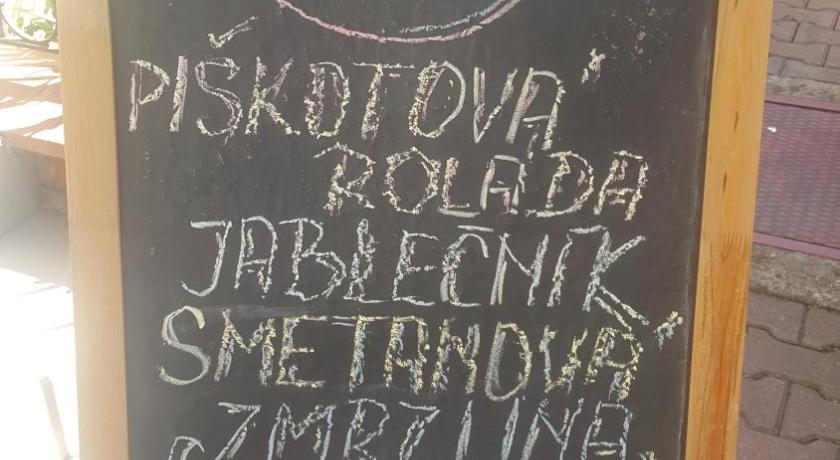 PIŠKOTOVÁ
ROLÁDA
JABLEČNÍK
SMETANOVÁ
ZMRZLINA